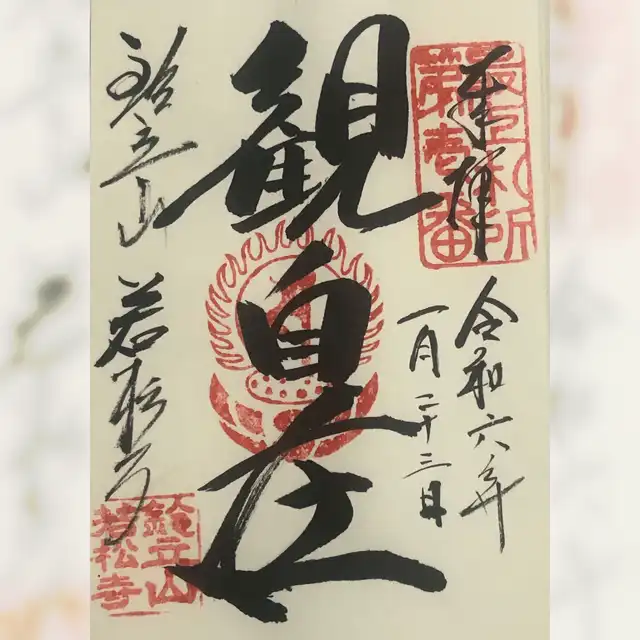 奉拝
最上札所
第壱番
令和六年
一月二十三日
観自在
鈴立山
若松寺
鈴立山
若松寺